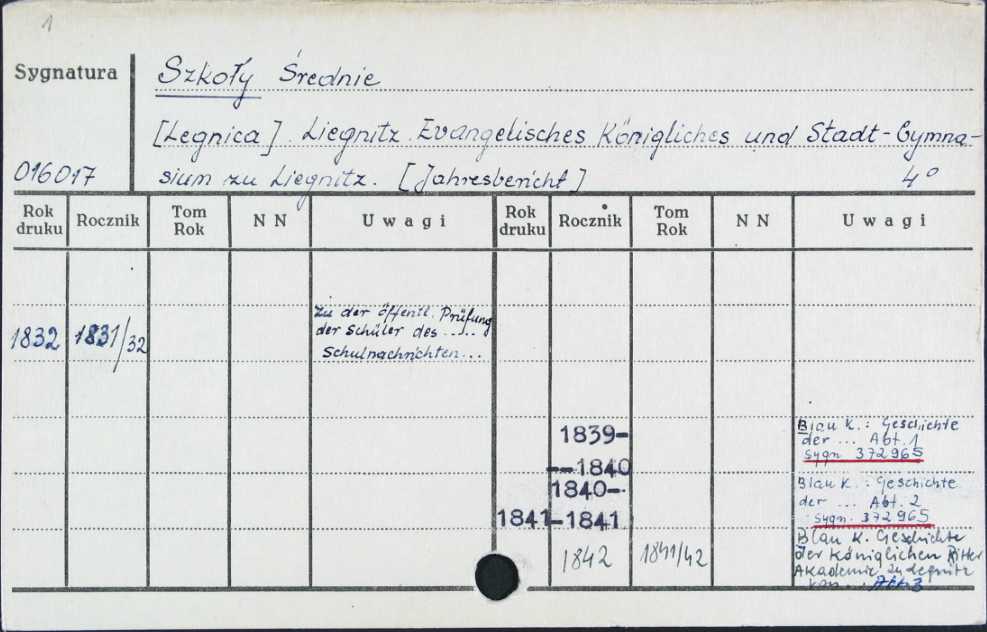 1
Sygnatura
Szkoły Średnie
[Legnica]. Liegnitz. Evangelisches Königliches und Stadt-Gymna-
016017
sium zu Liegnitz. [Jahresbericht] 4°
Rok druku Rocznik Tom Rok N N Uwagi Rok druku Rocznik Tom Rok N N Uwagi
1832 1831/32
Zu der öffentl. Prüfung
der Schüler des .....
Schulnachrichten...
1839-
--1840
Blau K.: Geschichte
der ... Abt. 1
sygn. 372965
1840-
1841-1841
Blau K.: Geschichte
der ... Abt. 2
sygn. 372965
1842 1841/42
Blau K. Geschichte
der Königlichen Ritter
Akademie zu Liegnitz
Abt. 3